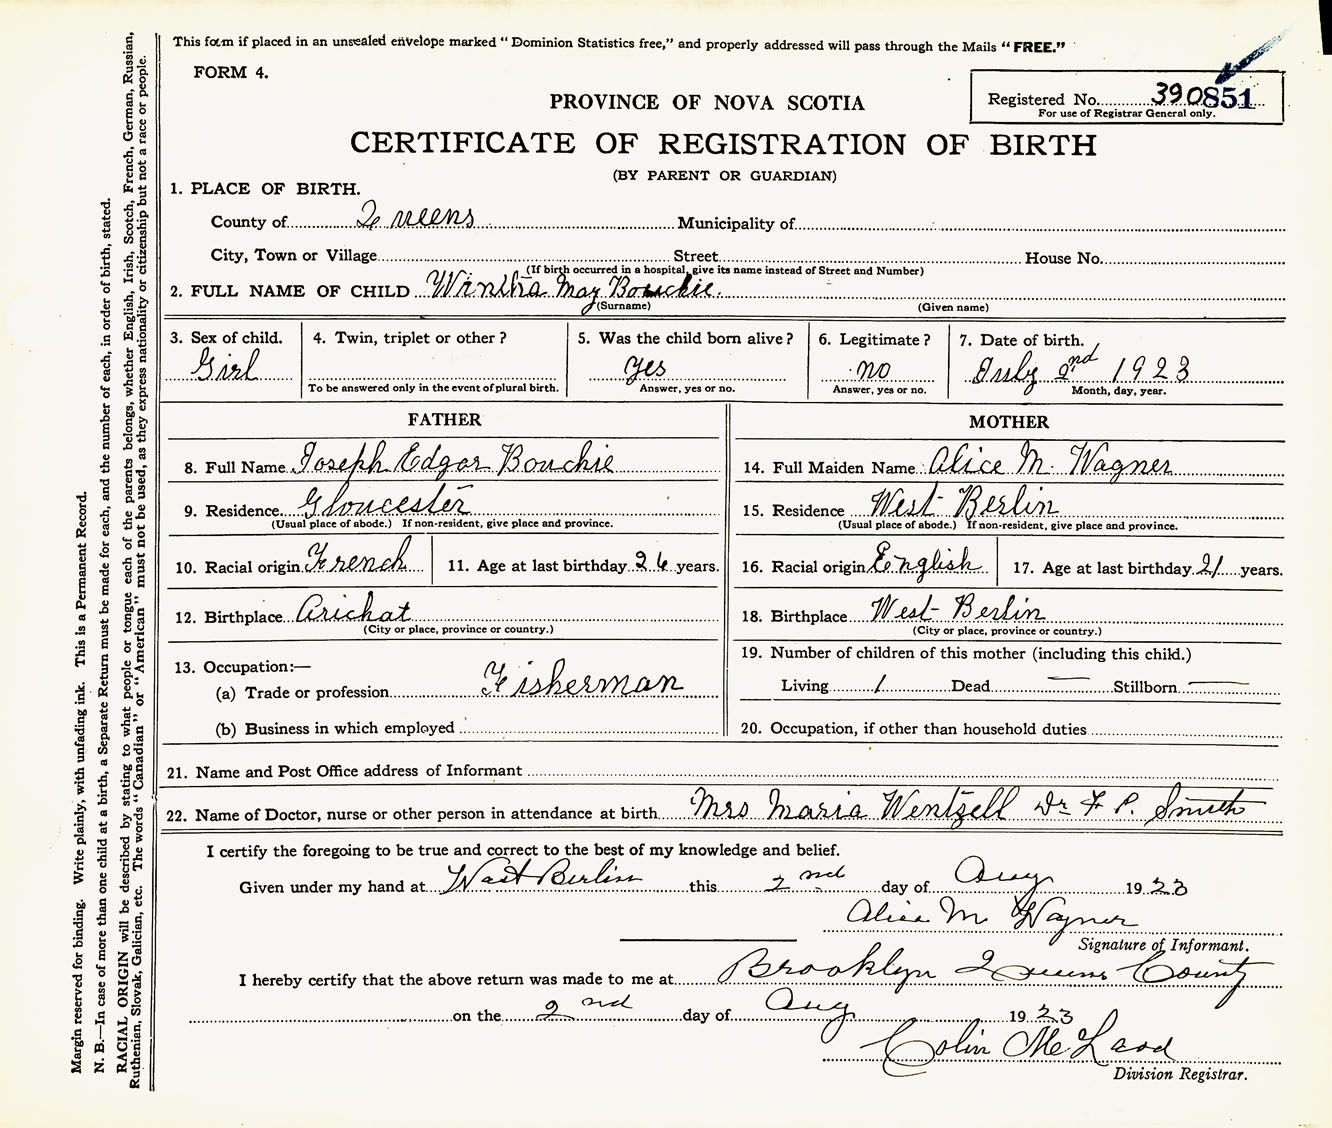 This form if placed in an unsealed envelope marked "Dominion Statistics free," and properly addressed will pass through the Mails "FREE."
FORM 4.
Registered No. 390851
For use of Registrar General only.
PROVINCE OF NOVA SCOTIA
CERTIFICATE OF REGISTRATION OF BIRTH
(BY PARENT OR GUARDIAN)
1. PLACE OF BIRTH.
County of Queens Municipality of
City, Town or Village Street House No.
(If birth occurred in a hospital, give its name instead of Street and Number)
2. FULL NAME OF CHILD May Bouchie.
(Surname) (Given name)
3. Sex of child. 4. Twin, triplet or other? 5. Was the child born alive? 6. Legitimate? 7. Date of birth.
Girl yes no July 2nd 1923
To be answered only in the event of plural birth. Answer, yes or no. Answer, yes or no. Month, day, year.
FATHER
8. Full Name Joseph Edgar Bouchie
9. Residence Gloucester
(Usual place of abode.) If non-resident, give place and province.
10. Racial origin French 11. Age at last birthday 26 years.
12. Birthplace Arichat
(City or place, province or country.)
13. Occupation:—
(a) Trade or profession Fisherman
(b) Business in which employed
MOTHER
14. Full Maiden Name Alice M. Wagner
15. Residence West Berlin
(Usual place of abode.) If non-resident, give place and province.
16. Racial origin English 17. Age at last birthday 21 years.
18. Birthplace West Berlin
(City or place, province or country.)
19. Number of children of this mother (including this child.)
Living 1 Dead — Stillborn —
20. Occupation, if other than household duties
21. Name and Post Office address of Informant
22. Name of Doctor, nurse or other person in attendance at birth Mrs Maria Wentzell Dr F P. Smith
I certify the foregoing to be true and correct to the best of my knowledge and belief.
Given under my hand at West Berlin this 2nd day of Aug 1923
Alice M Wagner
Signature of Informant.
I hereby certify that the above return was made to me at Brooklyn Queens County
on the 2nd day of Aug 1923
Colin McLeod
Division Registrar.
Margin reserved for binding. Write plainly, with unfading ink. This is a Permanent Record.
N. B.—In case of more than one child at a birth, a Separate Return must be made for each, and the number of each, in order of birth, stated.
RACIAL ORIGIN will be described by stating to what people or tongue each of the parents belongs, whether English, Irish, Scotch, French, German, Russian,
Ruthenian, Slovak, Galician, etc. The words "Canadian" or "American" must not be used, as they express nationality or citizenship but not a race or people.